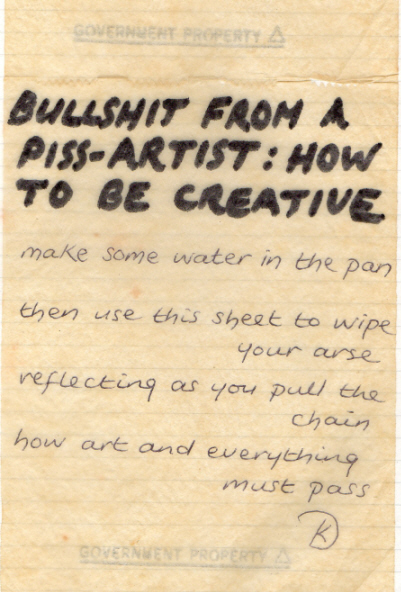 GOVERNMENT PROPERTY
BULLSHIT FROM A
PISS-ARTIST: HOW
TO BE CREATIVE
make some water in the pan
then use this sheet to wipe
your arse
reflecting as you pull the
chain
how art and everything
must pass
K
GOVERNMENT PROPERTY